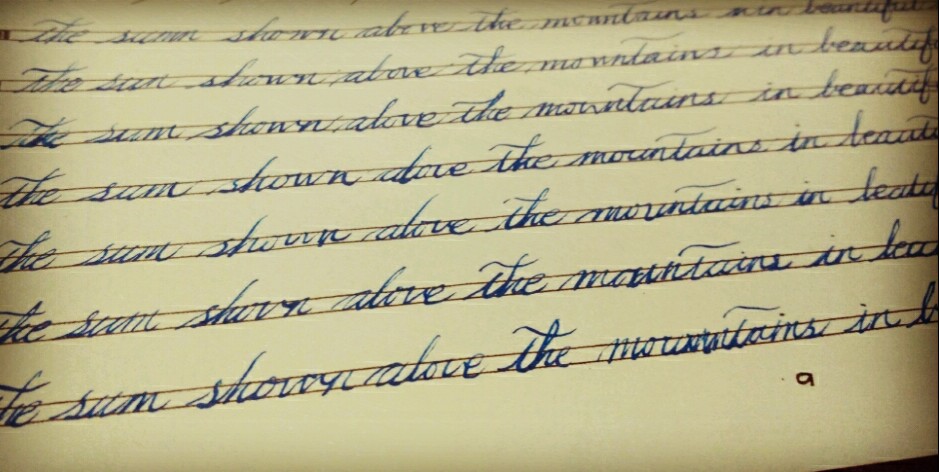 the sumn shown above the mountains in beautiful
the sun shown above the mountains in beautif
the sum shown above the mountains in beautif
the sum shown above the mountains in beauti
the sum shown above the mountains in beatif
the sum shown above the mountains in bea
the sum shown above the mountains in b
a